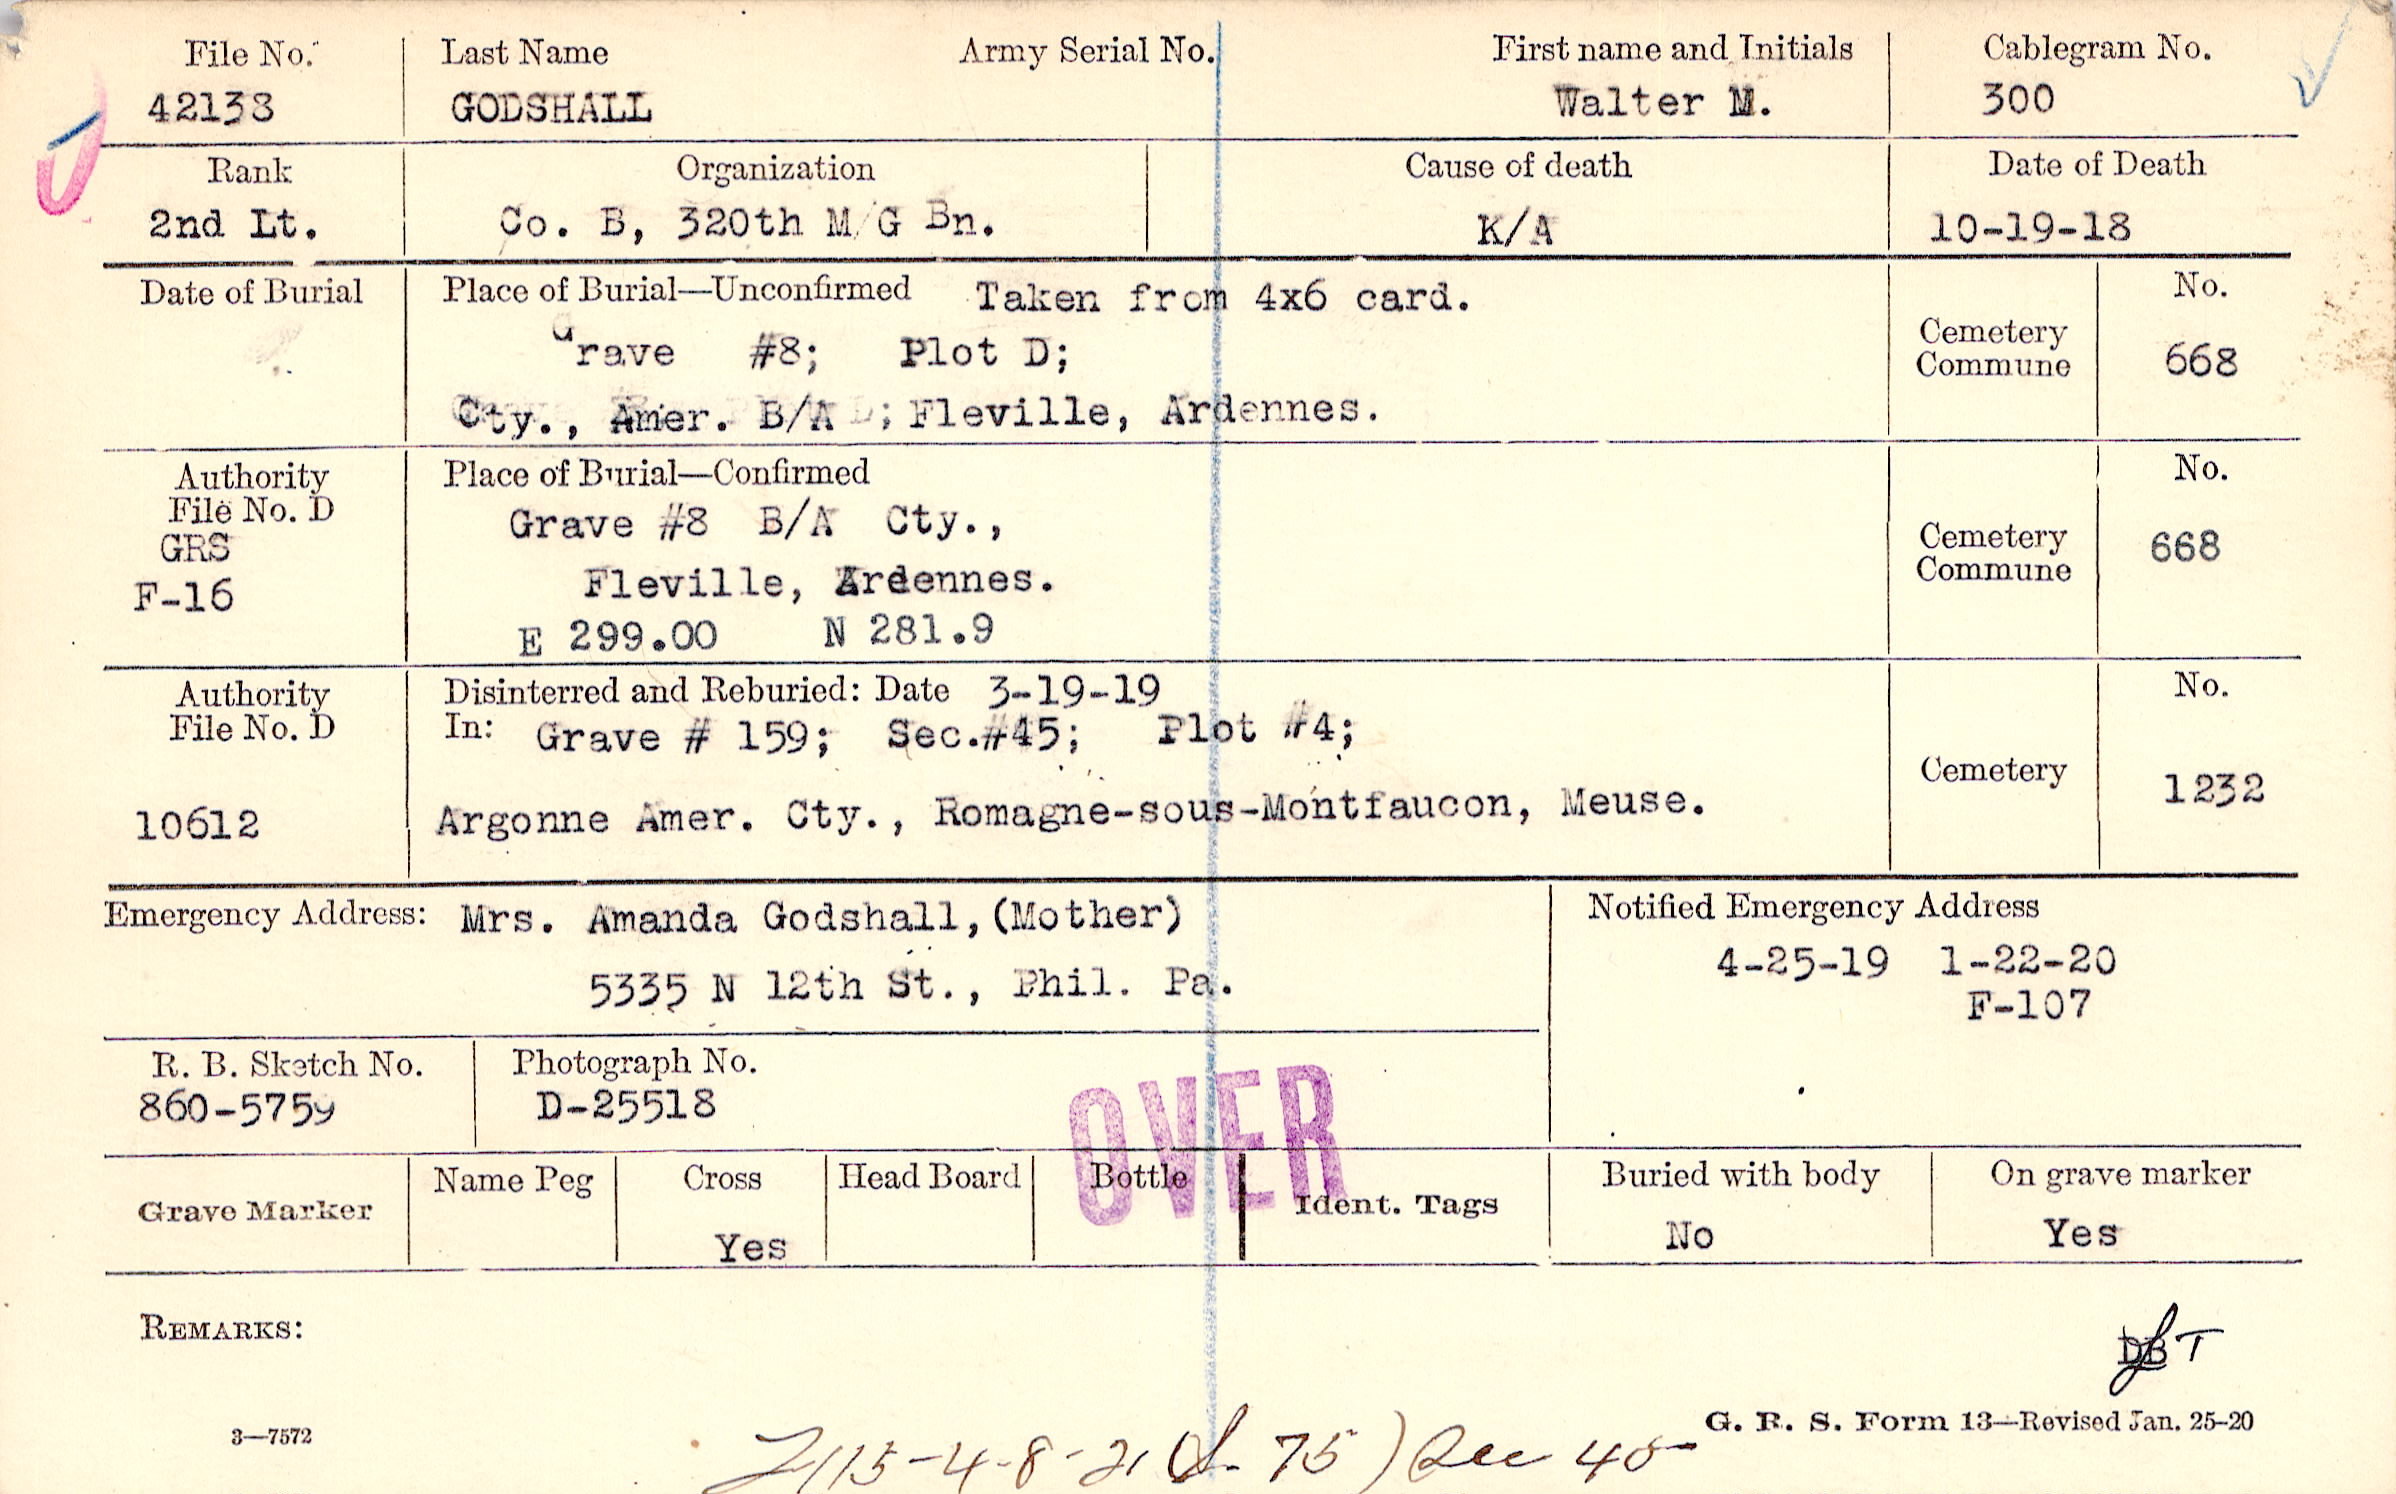 File No. Last Name Army Serial No. First name and Initials Cablegram No.
42138 GODSHALL Walter M. 300
Rank Organization Cause of death Date of Death
2nd Lt. Co. B, 320th M/G Bn. K/A 10-19-18
Date of Burial Place of Burial—Unconfirmed Taken from 4x6 card. No.
Grave #8; Plot D; Cemetery
Commune 668
Cty., Amer. B/A ; Fleville, Ardennes.
Authority Place of Burial—Confirmed No.
File No. D Grave #8 B/A Cty., Cemetery
GRS Commune 668
F-16 Fleville, Ardennes.
E 299.00 N 281.9
Authority Disinterred and Reburied: Date 3-19-19 No.
File No. D In: Grave # 159; Sec.#45; Plot #4;
Cemetery 1232
10612 Argonne Amer. Cty., Romagne-sous-Montfaucon, Meuse.
Emergency Address: Mrs. Amanda Godshall, (Mother) Notified Emergency Address
5335 N 12th St., Phil. Pa. 4-25-19 1-22-20
F-107
R. B. Sketch No. Photograph No.
860-575y D-25518
OVER
Grave Marker Name Peg Cross Head Board Bottle Ident. Tags Buried with body On grave marker
Yes No Yes
REMARKS:
DB T
3—7572 G. R. S. Form 13—Revised Jan. 25-20
115-4-8-21 75) Sec 45